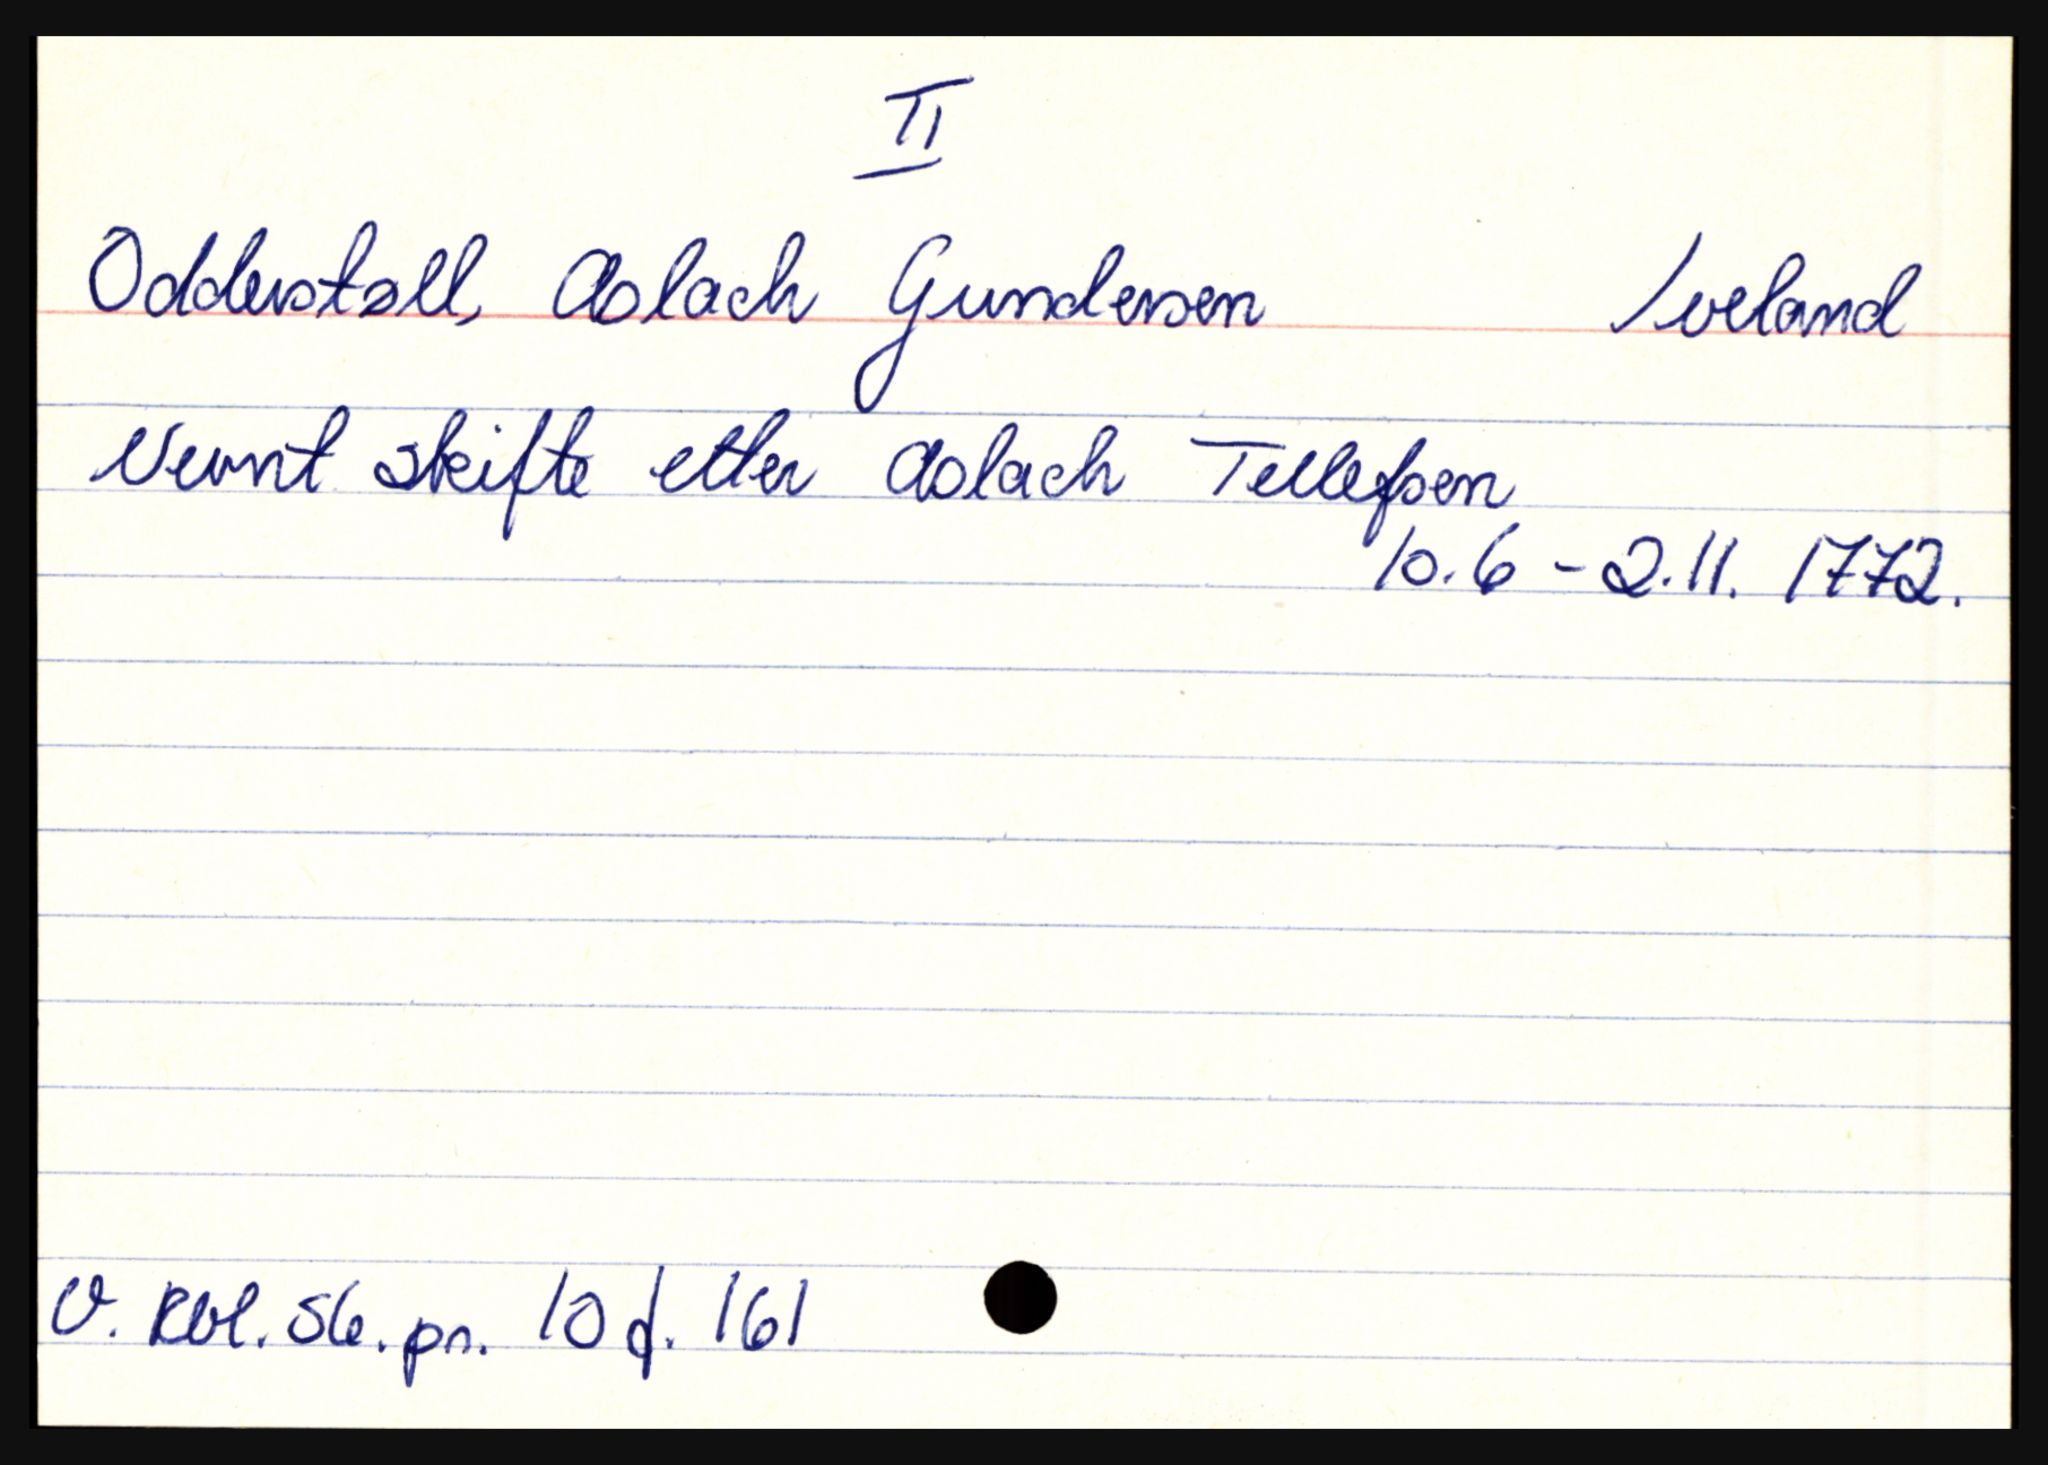 II
Odderstøll, Aslach Gundersen Iveland
Nevnt skifte etter Aslach Tellefsen
10.6 - 2.11. 1772.
V. Rbl. Sk. pr. 10 f. 161